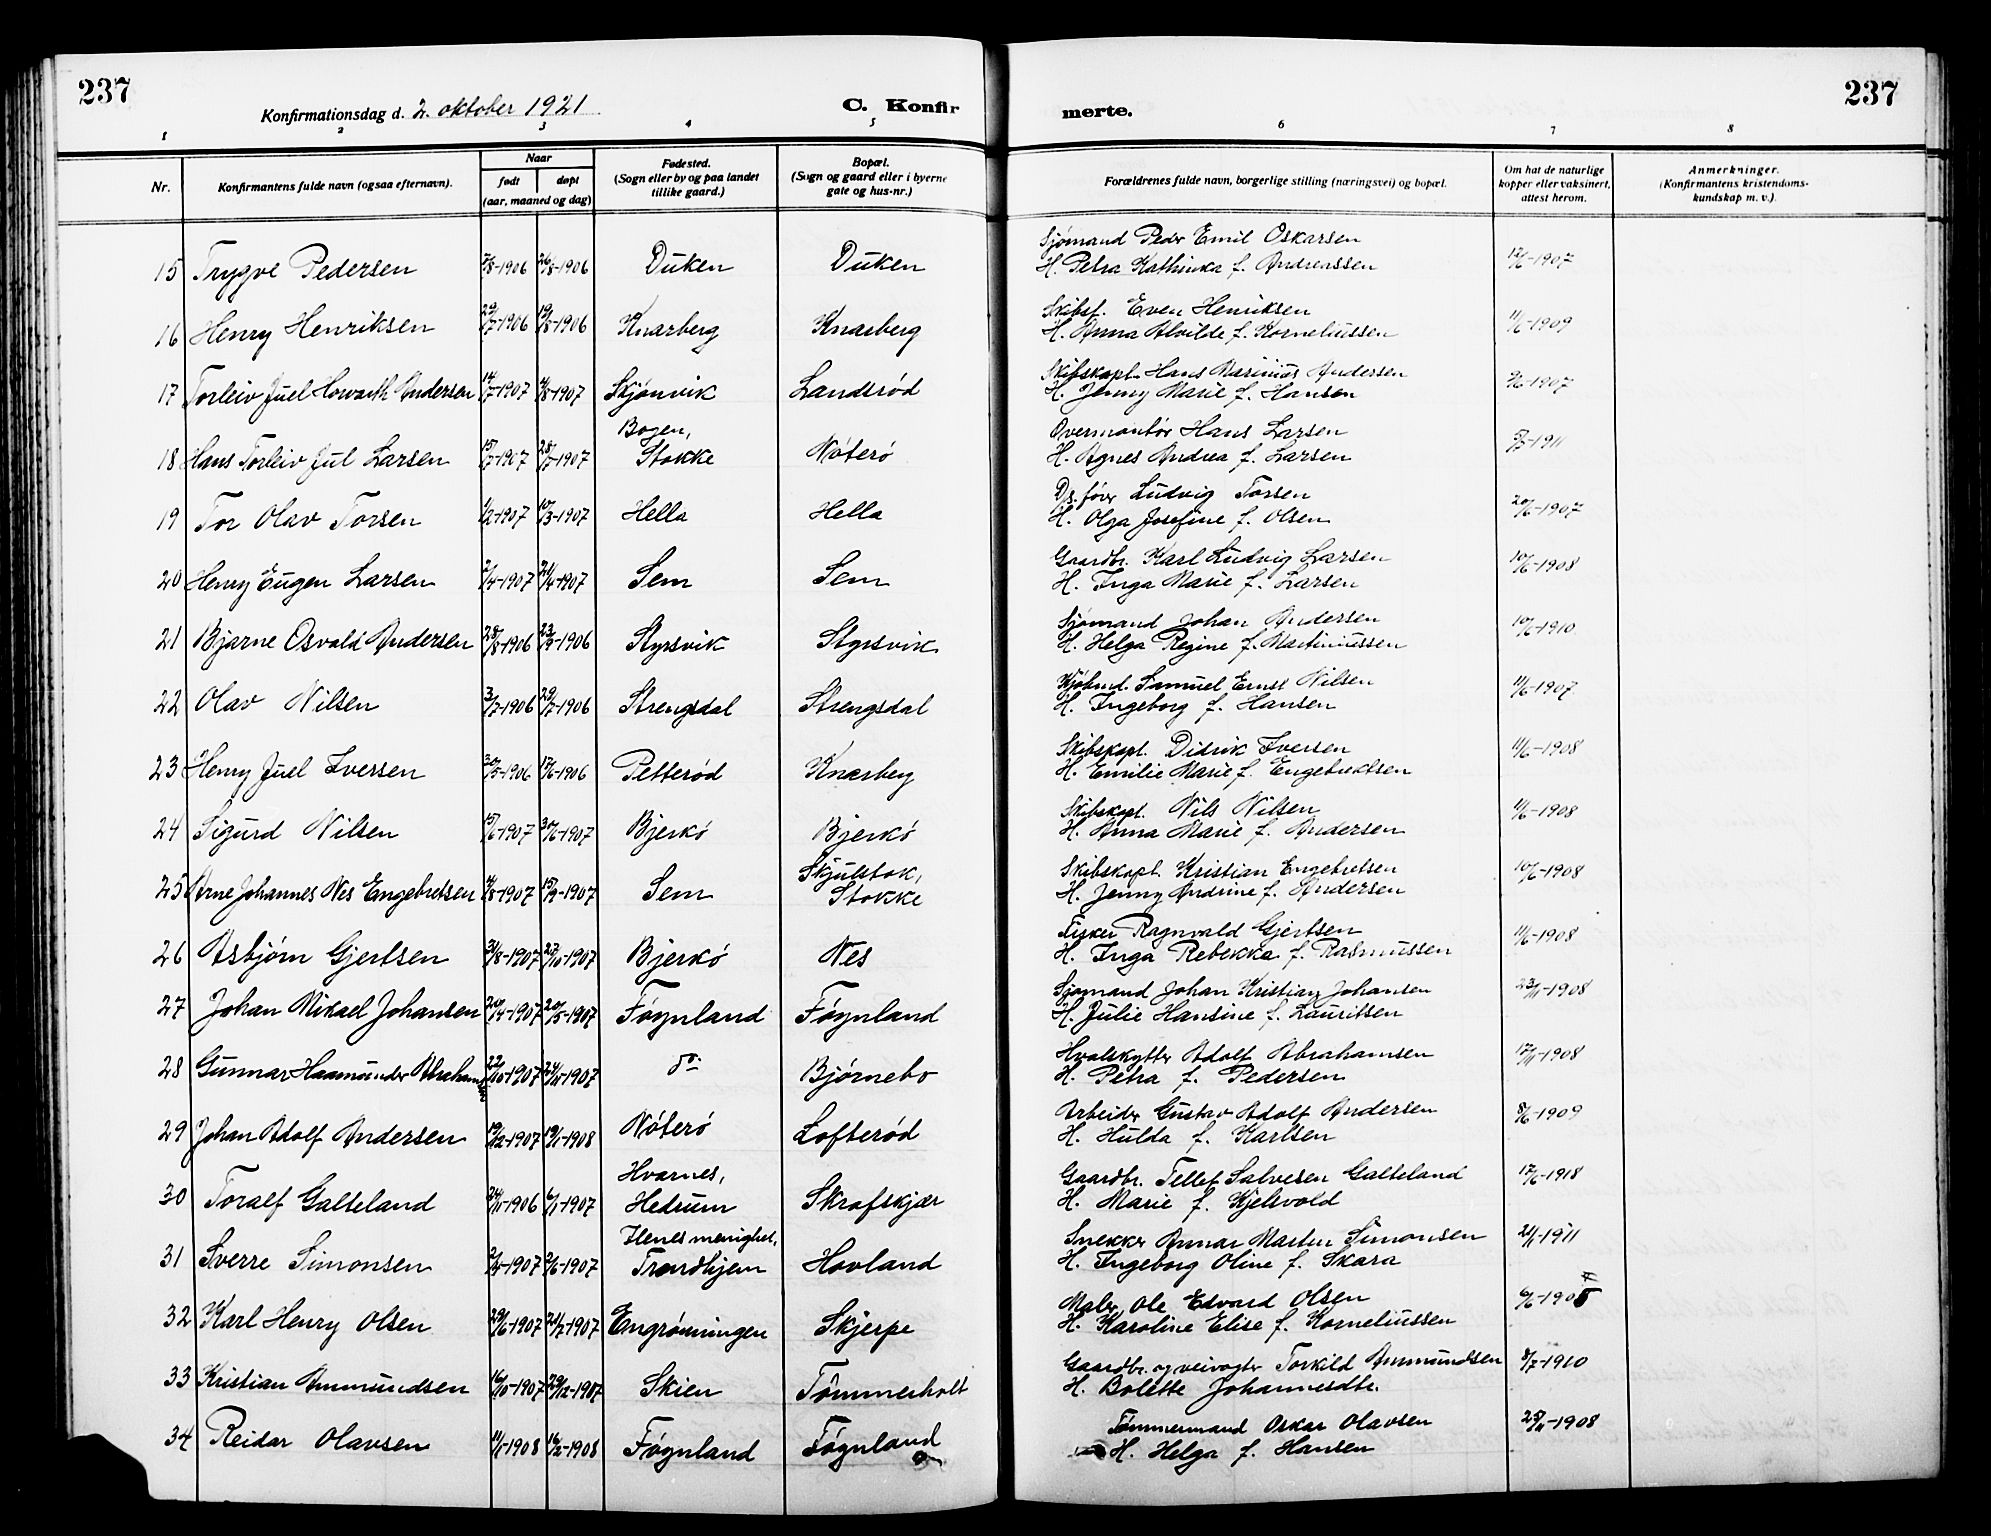 237
Konfirmationsdag d. 2. oktober 1921
C. Konfir
merte.
237
1 2 3 4 5 6 7 8
Nr.
Konfirmantens fulde navn (ogsaa efternavn).
Naar
født
døpt
(aar, maaned og dag)
Fødested.
(Sogn eller by og paa landet
tillike gaard.)
Bopæl.
(Sogn og gaard eller i byerne
gate og hus-nr.)
Forældrenes fulde navn, borgerlige stilling (næringsvei) og bopæl.
Om hat de naturlige
kopper eller vaksinert,
attest herom.
Anmerkninger.
(Konfirmantens kristendoms-
kundskap m. v.).
Sjømand Peder Emil Oskarsen
15 Trygve Pedersen 7/8-1906 26/8-1906 Duken Duken H. Petra Kathinka f. Andreassen 12/6-1907
Skibsf. Even Henriksen
16 Henry Henriksen 29/7-1906 19/8-1906 Knarberg Knarberg H. Anna Alvilde f. Korneliussen 11/6-1909
Skibskapt. Hans Marinius Andersen
17 Torleiv Juel Howarth Andersen 14/7-1907 4/8-1907 Skjønvik Landsrød H. Jenny Marie f. Hansen 9/6-1907
Bogen, Overmontør Hans Larsen
18 Hans Torleiv Jul Larsen 15/7-1907 28/7-1907 Stokke Nøterø H. Agnes Andrea f. Larsen 5/7-1911
Ds. fører Ludvig Torsen
19 Tor Olav Torsen 1/2-1907 10/3-1907 Hella Hella H. Olga Josefine f. Olsen 20/6-1907
Gaardbr. Karl Ludvig Larsen
20 Henry Eugen Larsen 2/4-1907 21/4-1907 Sem Sem H. Inga Marie f. Larsen 10/6-1908
Sjømand Johan Andersen
21 Bjarne Osvald Andersen 28/8-1906 23/9-1906 Styrsvik Styrsvik H. Helga Regine f. Martiniussen 10/6-1910
Kjøbmd. Samuel Ernst Nilsen
22 Olav Nilsen 3/7-1906 29/7-1906 Strengsdal Strengsdal H. Ingeborg f. Hansen 11/6-1907
Skibskapt. Didrik Iversen
23 Henry Juel Iversen 30/5-1906 17/6-1906 Petterød Knarberg H. Emilie Marie f. Engebretsen 11/6-1908
Skibskapt. Nils Nilsen
24 Sigurd Nilsen 15/6-1907 30/6-1907 Bjerkø Bjerkø H. Anna Marie f. Andersen 11/6-1908
Skjulstok, Skibskapt. Kristian Engebretsen
25 Arne Johannes Nes Engebretsen 4/8-1907 15/9-1907 Sem Stokke H. Jenny Andrine f. Andersen 10/6-1908
Fisker Ragnvald Gjertsen
26 Asbjørn Gjertsen 31/8-1907 27/10-1907 Bjerkø Nes H. Inga Rebekka f. Rasmussen 11/6-1908
Sjømand Johan Kristian Johansen
27 Johan Mikael Johansen 20/4-1907 20/5-1907 Føynland Føynland H. Julie Hansine f. Lauritsen 23/11-1908
Hvalskytter Adolf Abrahamsen
28 Gunnar Haamunder Abrahamsen 22/10-1907 24/11-1907 do Bjørnebo H. Petra f. Pedersen 17/11-1908
Arbeider Gustav Adolf Andersen
29 Johan Adolf Andersen 19/12-1907 19/1-1908 Nøterø Lofterød H. Hulda f. Karlsen 8/6-1909
Hvarnes, Gaardbr. Tellef Salvesen Galteland
30 Toralf Galteland 24/11-1906 6/1-1907 Hedrum Skrafskjær H. Marie f. Kjelsvold 17/6-1918
Ilenes menighet, Snekker Annar Martin Simonsen
31 Sverre Simonsen 2/4-1907 2/6-1907 Trondhjem Hovland H. Ingeborg Oline f. Skara 21/1-1911
Maler Ole Edvard Olsen
32 Karl Henry Olsen 29/6-1907 21/7-1907 Engrønningen Skjerpe H. Karoline Elise f. Korneliussen
Gaardbr. og veivogter Torkild Ammundsen
33 Kristian Ammundsen 16/10-1907 29/12-1907 Skien Tømmerholt H. Bolette Johannesdtr. 8/7-1910
Tømmermand Oskar Olavsen
34 Reidar Olavsen 11/1-1908 16/2-1908 Føynland Føynland H. Helga f. Hansen 25/11-1908